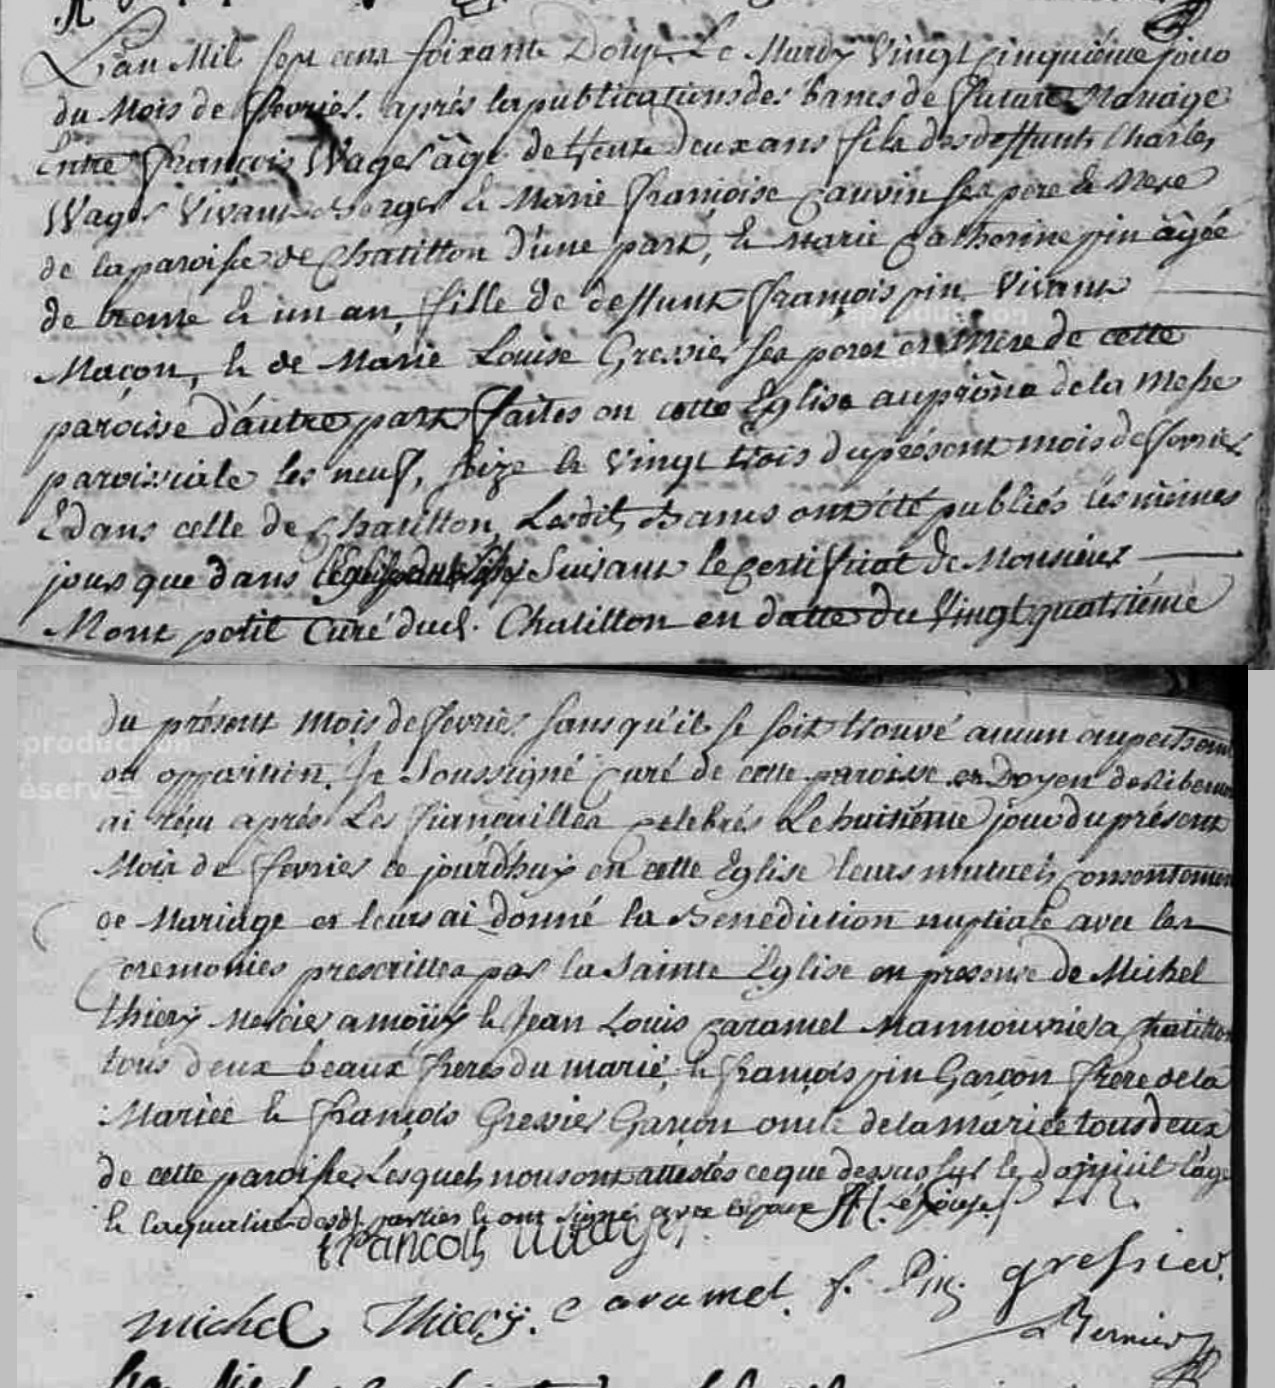 L'an Mil sept cent soixante Douze Le Mardy Vingt cinquième jour
du Mois de fevrier. après la publications des bancs de futur Mariage
Entre françois Wager âgé de trente deux ans fils des deffunts Charles
Wager Vivant Berger & Marie françoise Cauvin ses pere & Mere
de la paroisse de Chatillon d'une part, & marie Catherine pin âgée
de trente & un an, fille de deffunt françois pin Vivant
Maçon, & de Marie Louise Gressier ses peres et Mere de cette
paroisse d'autre part faites en cette Eglise au prône de la Messe
paroissiale les neuf, seize & vingt trois du présent mois de fevrier
& dans celle de Chatillon, Lesdits Bancs ont été publiés les mêmes
jours que dans Suivant le certificat de Monsieur
Mont petit Curé dud. Chatillon en datte du Vingt quatrième
du présent mois de fevrier sans qu'il se soit trouvé aucun
ou opposition. Je Soussigné Curé de cette paroisse et Doyen de Ribemont
ai reçu après Les fiançailles celebrés Le huitième jour du présent
Mois de fevrier ce jourdhuy en cette Eglise leurs mutuels Consentement
de Mariage et leurs ai donné la Benediction nuptiale avec les
Ceremonies prescrittes par la Sainte Eglise en presence de Michel
thiery Mercier a moÿ & Jean Louis Caramel Manouvrier a Chatillon
tous deux beaux freres du marié, & françois pin Garçon frere de la
Mariée & françois Gressier Garçon oncle de la mariée tous deux
de cette paroisse Lesquels nous ont attestés ce que dessus sur le domicil l'âge
& la qualité desd. parties & ont signé avec l'epoux & l'épouse
francois Wager
michel Thiery. Caramel. f. Pin gressier.
Bernier